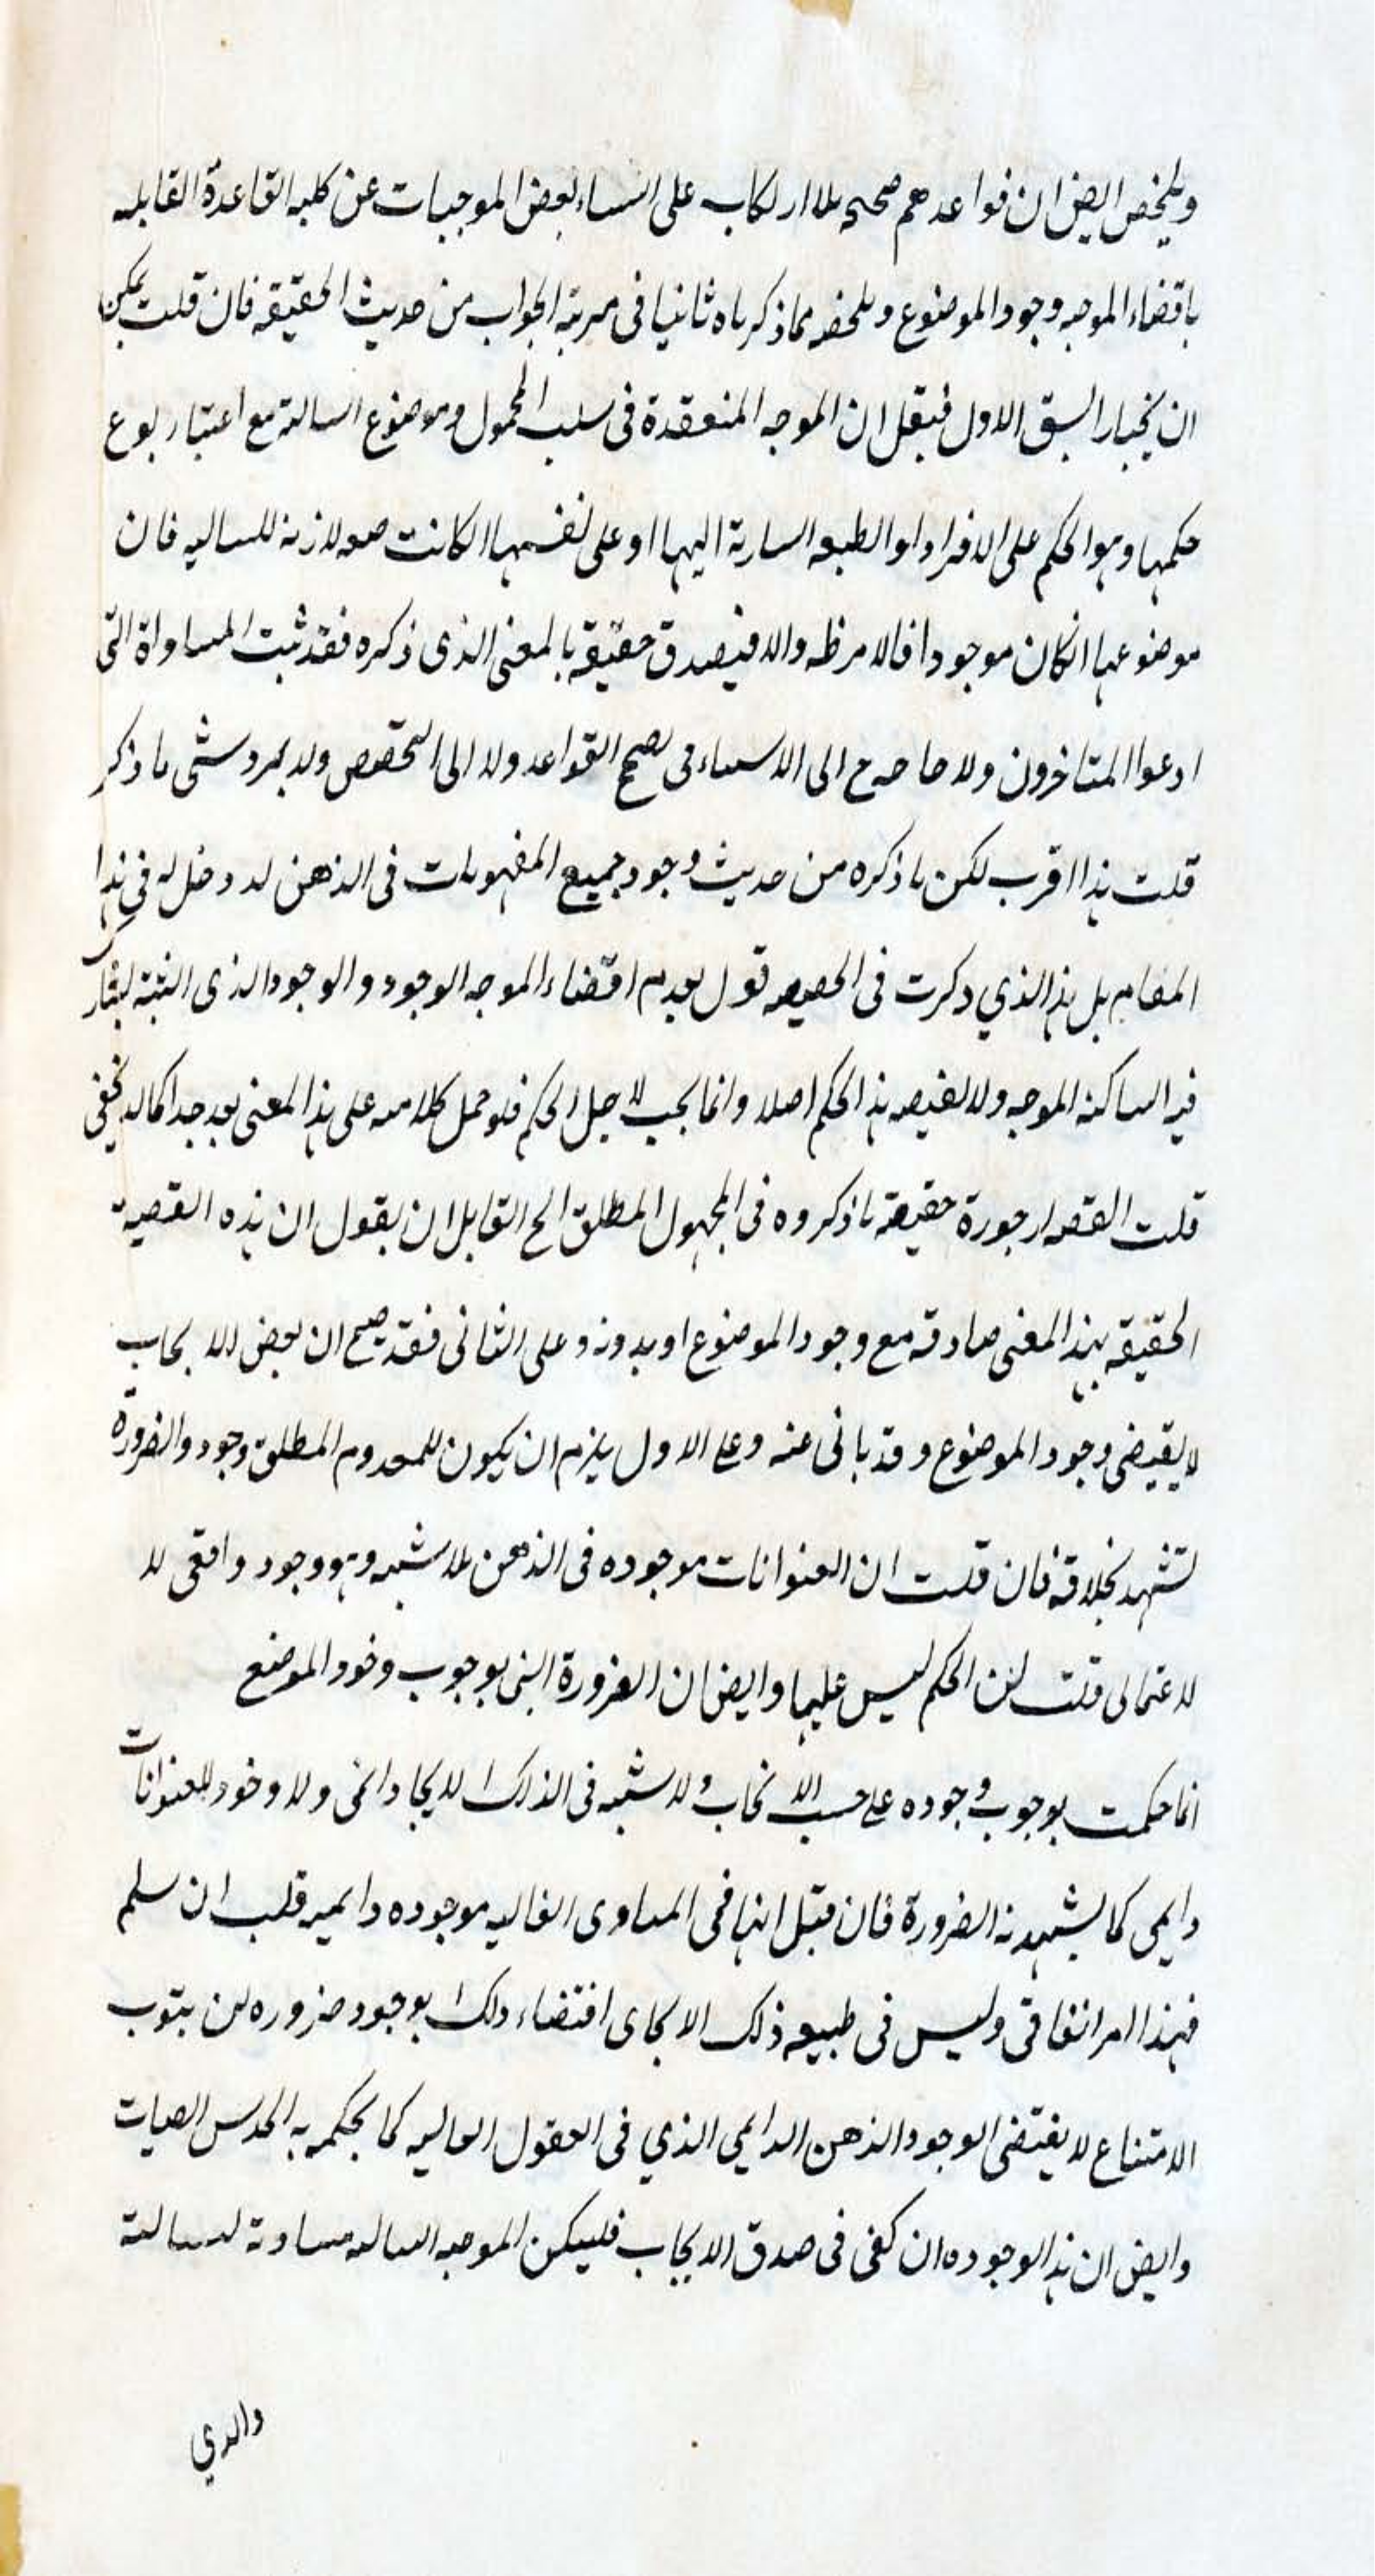 وتلخص ايض ان قواعدهم صحيحه بلا ارتكاب على استثناء بعض الموجبات عن كليه القاعدة القايله
باقضاء الموجبه وجود الموضوع وملخصه مما ذكرناه ثانيا فى مرتبة الجواب من حديث الحقيقه فان قلت يمكن
ان يختار الشق الاول فيقل ان الموجبه المنعقدة فى سلب المحمول وموضوع السالبة مع اعتبار نوع
حكمها وهو الحكم على الافراد او الطبيعه السارية اليها او على نفسها الكانت لازمة للسالبه فان
موضوعها انكان موجودا فالامر ظه والا فيصدق حقيقه بالمعنى الذى ذكره فقد ثبت المساواة التى
ادعوا المتاخرون ولا حاجه ح الى الاستثناء فى تصحيح القواعد ولا الى التخصيص ولا يرد شئ ما ذكر
قلت هذا اقرب لكن ما ذكره من حديث وجود جميع المفهومات فى الذهن لا دخل له فى هذا
المقام بل هذا الذي ذكرت فى الحقيقه قول بعدم اقتضاء الموجبه الوجود والوجود الذى اثبته يشارك
فيه السالبة الموجبه ولا لخصوصه هذا الحكم اصلا وانما يجب لاجل الحكم فلو حمل كلامه على هذا المعنى بعد جدا كما لا يخفى
قلت حقيقة ما ذكروه فى المجهول المطلق الخ القايل ان يقول ان هذه القضية
الحقيقه بهذا المعنى صادقه مع وجود الموضوع او بدونه وعلى الثانى فقد صح ان بعض الايجاب
لا يقيضى وجود الموضوع وقد يابى عنه وعلى الاول يلزم ان يكون للمعدوم المطلق وجود والضرورة
تشهد بخلافه فان قلت ان العنوانات موجوده فى الذهن بلا شبهه وهو وجود واقعى لا
لا قلت لان الحكم ليس عليها وايض ان الضرورة التى بوجوب وجود الموضع
انما حكمت بوجوب وجوده على حسب الايجاب ولا شبهه فى الذلك الايجا دائمى ولا وجود للعنوانات
دايمى كما يشهد به الضرورة فان قيل انها فى المبادى العاليه موجوده دايميه قلت ان سلم
فهذا امر اتفاقى وليس فى طبيعه ذلك الايجاى اقتضاء ذلك بوجود ضروره لان بثوت
الامتناع لا يقتضى الوجود الذهن الدايمى الذي فى العقول العاليه كما يحكمه به الحدس
وايض ان هذا الوجوده ان كفى فى صدق الايجاب فليكن الموجبه السالبه مساوية لسالبة
والذي